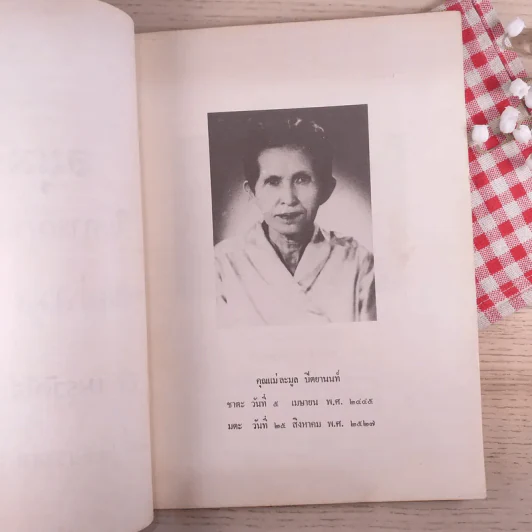 คุณแม่ละมูล ปิตยานนท์
ชาตะ วันที่ ๙ เมษายน พ.ศ. ๒๔๔๕
มตะ วันที่ ๒๕ สิงหาคม พ.ศ. ๒๕๒๗